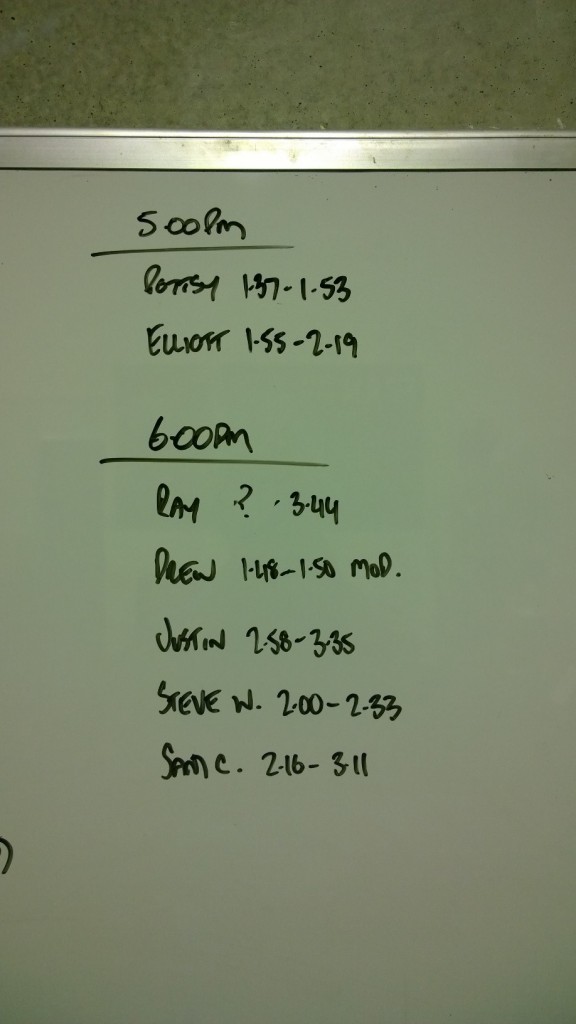 5.00Pm
POTTSY 1.37-1.53
ELLIOTT 1.55-2.19
6.00pm
RAY ? . 3.44
DREW 1.48-1.50 MOD.
JUSTIN 2.58-3.35
STEVE W. 2.00-2.33
SAM C. 2.16-3.11